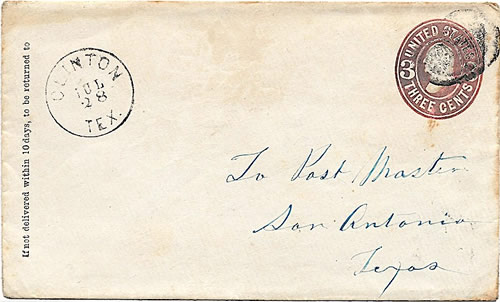 If not delivered within 10 days, to be returned to
CLINTON
JUL
28
TEX.
UNITED STATES
THREE CENTS
To Post Master
San Antonio
Texas